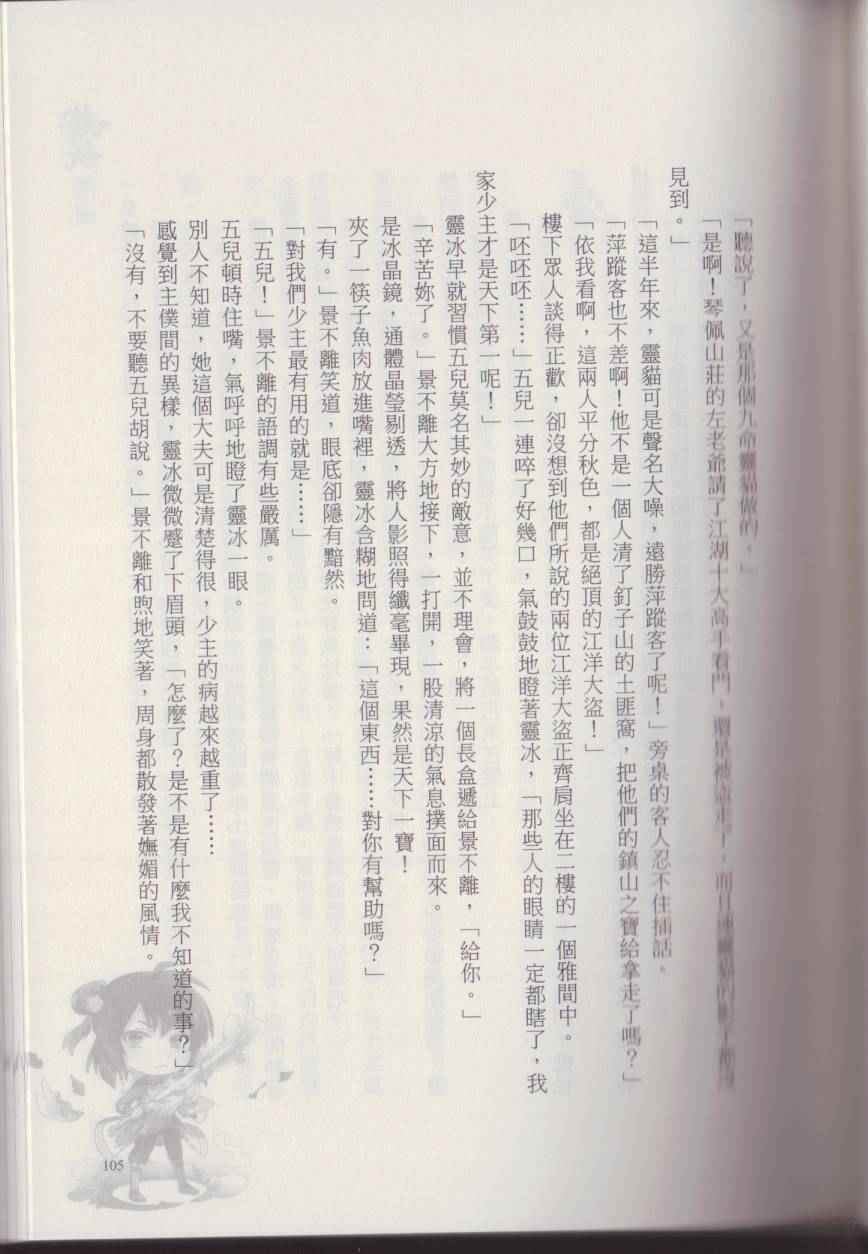 「聽說了，又是那個九命靈貓做的。」
「是啊！琴佩山莊的左老爺請了江湖十大高手看門，還是被盜走了，而且連靈貓的影子都沒
見到。」
「這半年來，靈貓可是聲名大噪，遠勝萍蹤客了呢！」旁桌的客人忍不住插話。
「萍蹤客也不差啊！他不是一個人清了釘子山的土匪窩，把他們的鎮山之寶給拿走了嗎？」
「依我看啊，這兩人平分秋色，都是絕頂的江洋大盜！」
樓下眾人談得正歡，卻沒想到他們所說的兩位江洋大盜正齊肩坐在二樓的一個雅間中。
「呸呸呸……」五兒一連啐了好幾口，氣鼓鼓地瞪著靈冰，「那些人的眼睛一定都瞎了，我
家少主才是天下第一呢！」
靈冰早就習慣五兒莫名其妙的敵意，並不理會，將一個長盒遞給景不離，「給你。」
「辛苦妳了。」景不離大方地接下，一打開，一股清凉的氣息撲面而來。
是冰晶鏡，通體晶瑩剔透，將人影照得纖毫畢現，果然是天下一寶！
夾了一筷子魚肉放進嘴裡，靈冰含糊地問道：「這個東西……對你有幫助嗎？」
「有。」景不離笑道，眼底卻隱有黯然。
「對我們少主最有用的就是……」
「五兒！」景不離的語調有些嚴厲。
五兒頓時住嘴，氣呼呼地瞪了靈冰一眼。
別人不知道，她這個大夫可是清楚得很，少主的病越來越重了……
感覺到主僕間的異樣，靈冰微微蹙了下眉頭，「怎麼了？是不是有什麼我不知道的事？」
「沒有，不要聽五兒胡說。」景不離和煦地笑著，周身都散發著嫵媚的風情。
105